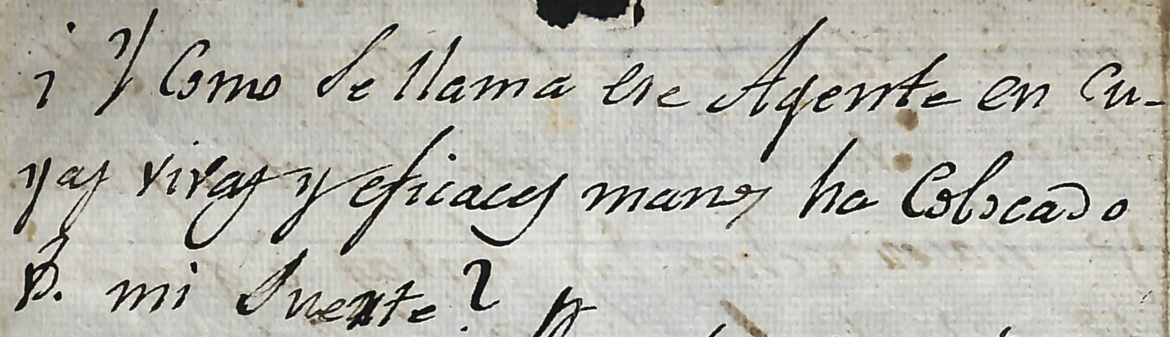 ¿ Y Como se llama ese Agente en Cu-
yas vivas y eficaces manos ha Colocado
V. mi Suerte?